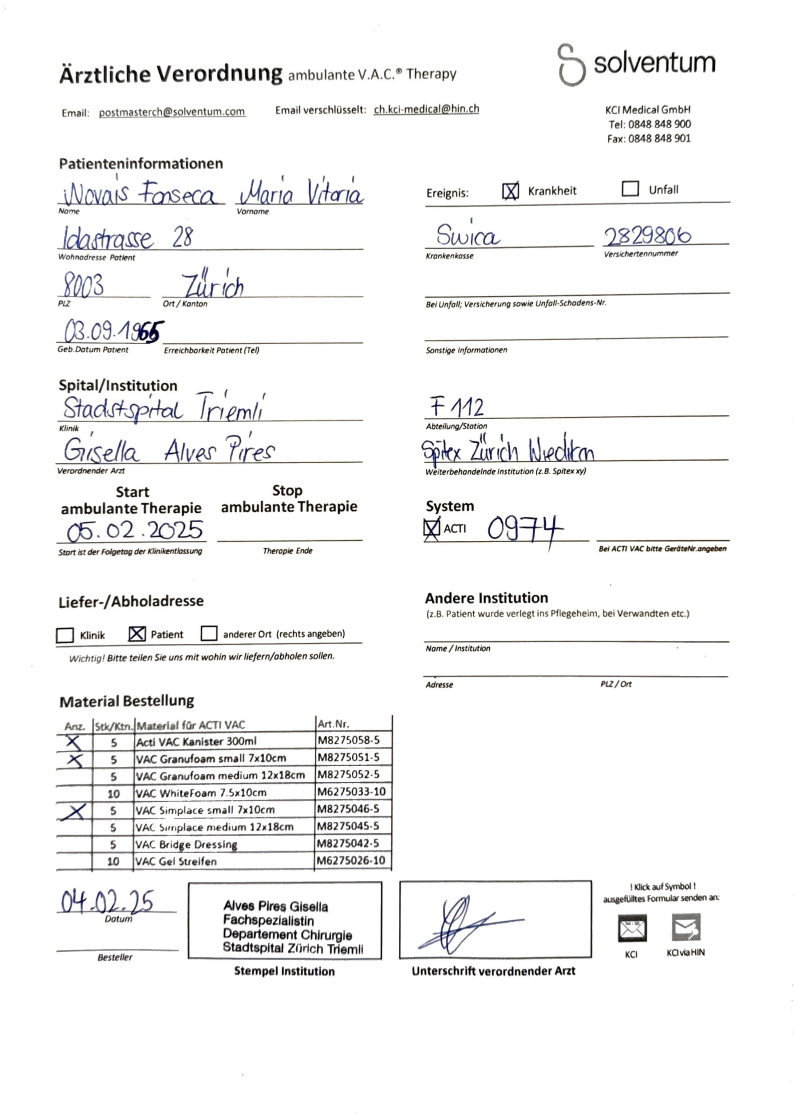 Ärztliche Verordnung ambulante V.A.C.® Therapy
solventum
Email: postmasterch@solventum.com Email verschlüsselt: ch.kci-medical@hin.ch
KCI Medical GmbH
Tel: 0848 848 900
Fax: 0848 848 901
Patienteninformationen
Novais Fonseca Maria Vitoria
Name Vorname
Ereignis: ☒ Krankheit ☐ Unfall
Idastrasse 28
Wohnadresse Patient
Swica 2829806
Krankenkasse Versichertennummer
8003 Zürich
PLZ Ort / Kanton
Bei Unfall; Versicherung sowie Unfall-Schadens-Nr.
03.09.1966
Geb.Datum Patient Erreichbarkeit Patient (Tel)
Sonstige Informationen
Spital/Institution
Stadstspital Triemli
Klinik
F 112
Abteilung/Station
Gisella Alves Pires
Verordnender Arzt
Spitex Zürich Wiedikon
Weiterbehandelnde Institution (z.B. Spitex xy)
Start
ambulante Therapie
Stop
ambulante Therapie
05.02.2025
Start ist der Folgetag der Klinikentlassung Therapie Ende
System
☒ ACTI 0974
Bei ACTI VAC bitte GeräteNr.angeben
Liefer-/Abholadresse
☐ Klinik ☒ Patient ☐ anderer Ort (rechts angeben)
Wichtig! Bitte teilen Sie uns mit wohin wir liefern/abholen sollen.
Andere Institution
(z.B. Patient wurde verlegt ins Pflegeheim, bei Verwandten etc.)
Name / Institution
Adresse PLZ / Ort
Material Bestellung
Anz. Stk/Ktn. Material für ACTI VAC Art.Nr.
X 5 Acti VAC Kanister 300ml M8275058-5
X 5 VAC Granufoam small 7x10cm M8275051-5
5 VAC Granufoam medium 12x18cm M8275052-5
10 VAC WhiteFoam 7.5x10cm M6275033-10
X 5 VAC Simplace small 7x10cm M8275046-5
5 VAC Simplace medium 12x18cm M8275045-5
5 VAC Bridge Dressing M8275042-5
10 VAC Gel Streifen M6275026-10
04.02.25
Datum
Besteller
Alves Pires Gisella
Fachspezialistin
Departement Chirurgie
Stadtspital Zürich Triemli
Stempel Institution
Unterschrift verordnender Arzt
! Klick auf Symbol !
ausgefülltes Formular senden an:
KCI KCI via HIN